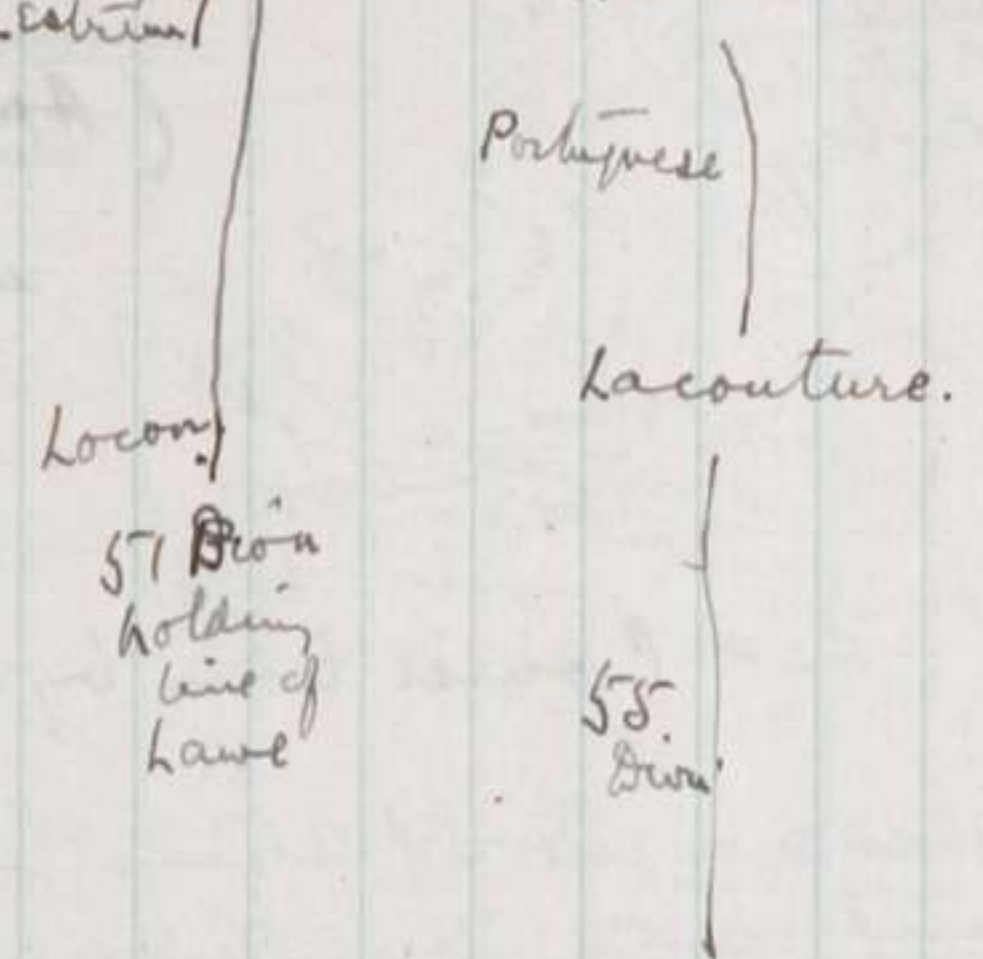 Lestrem
Portuguese
Lacouture.
Locon
51 Divon
holding
line of
Lawe
55.
Divn